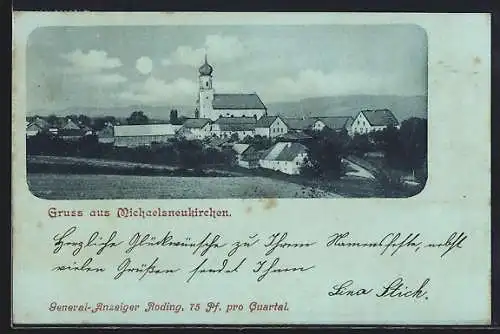 Gruss aus Michaelsneukirchen.
Herzliche Glückwünsche zu Ihrem Namensfeste, nebst
vielen Grüßen sendet Ihnen
Lina Stick.
General-Anzeiger Roding, 75 Pf. pro Quartal.